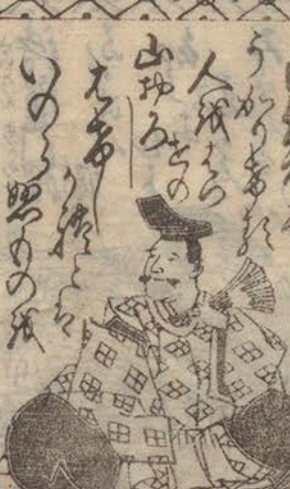 うかりける
人をはつ
せの
山おろし
よ
はげしかれとは
いのらぬものを